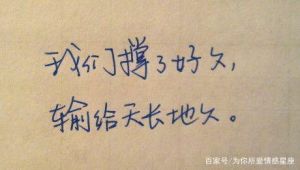 我们撑了好久,
输给天长地久。
百家号/为你所爱情感星座